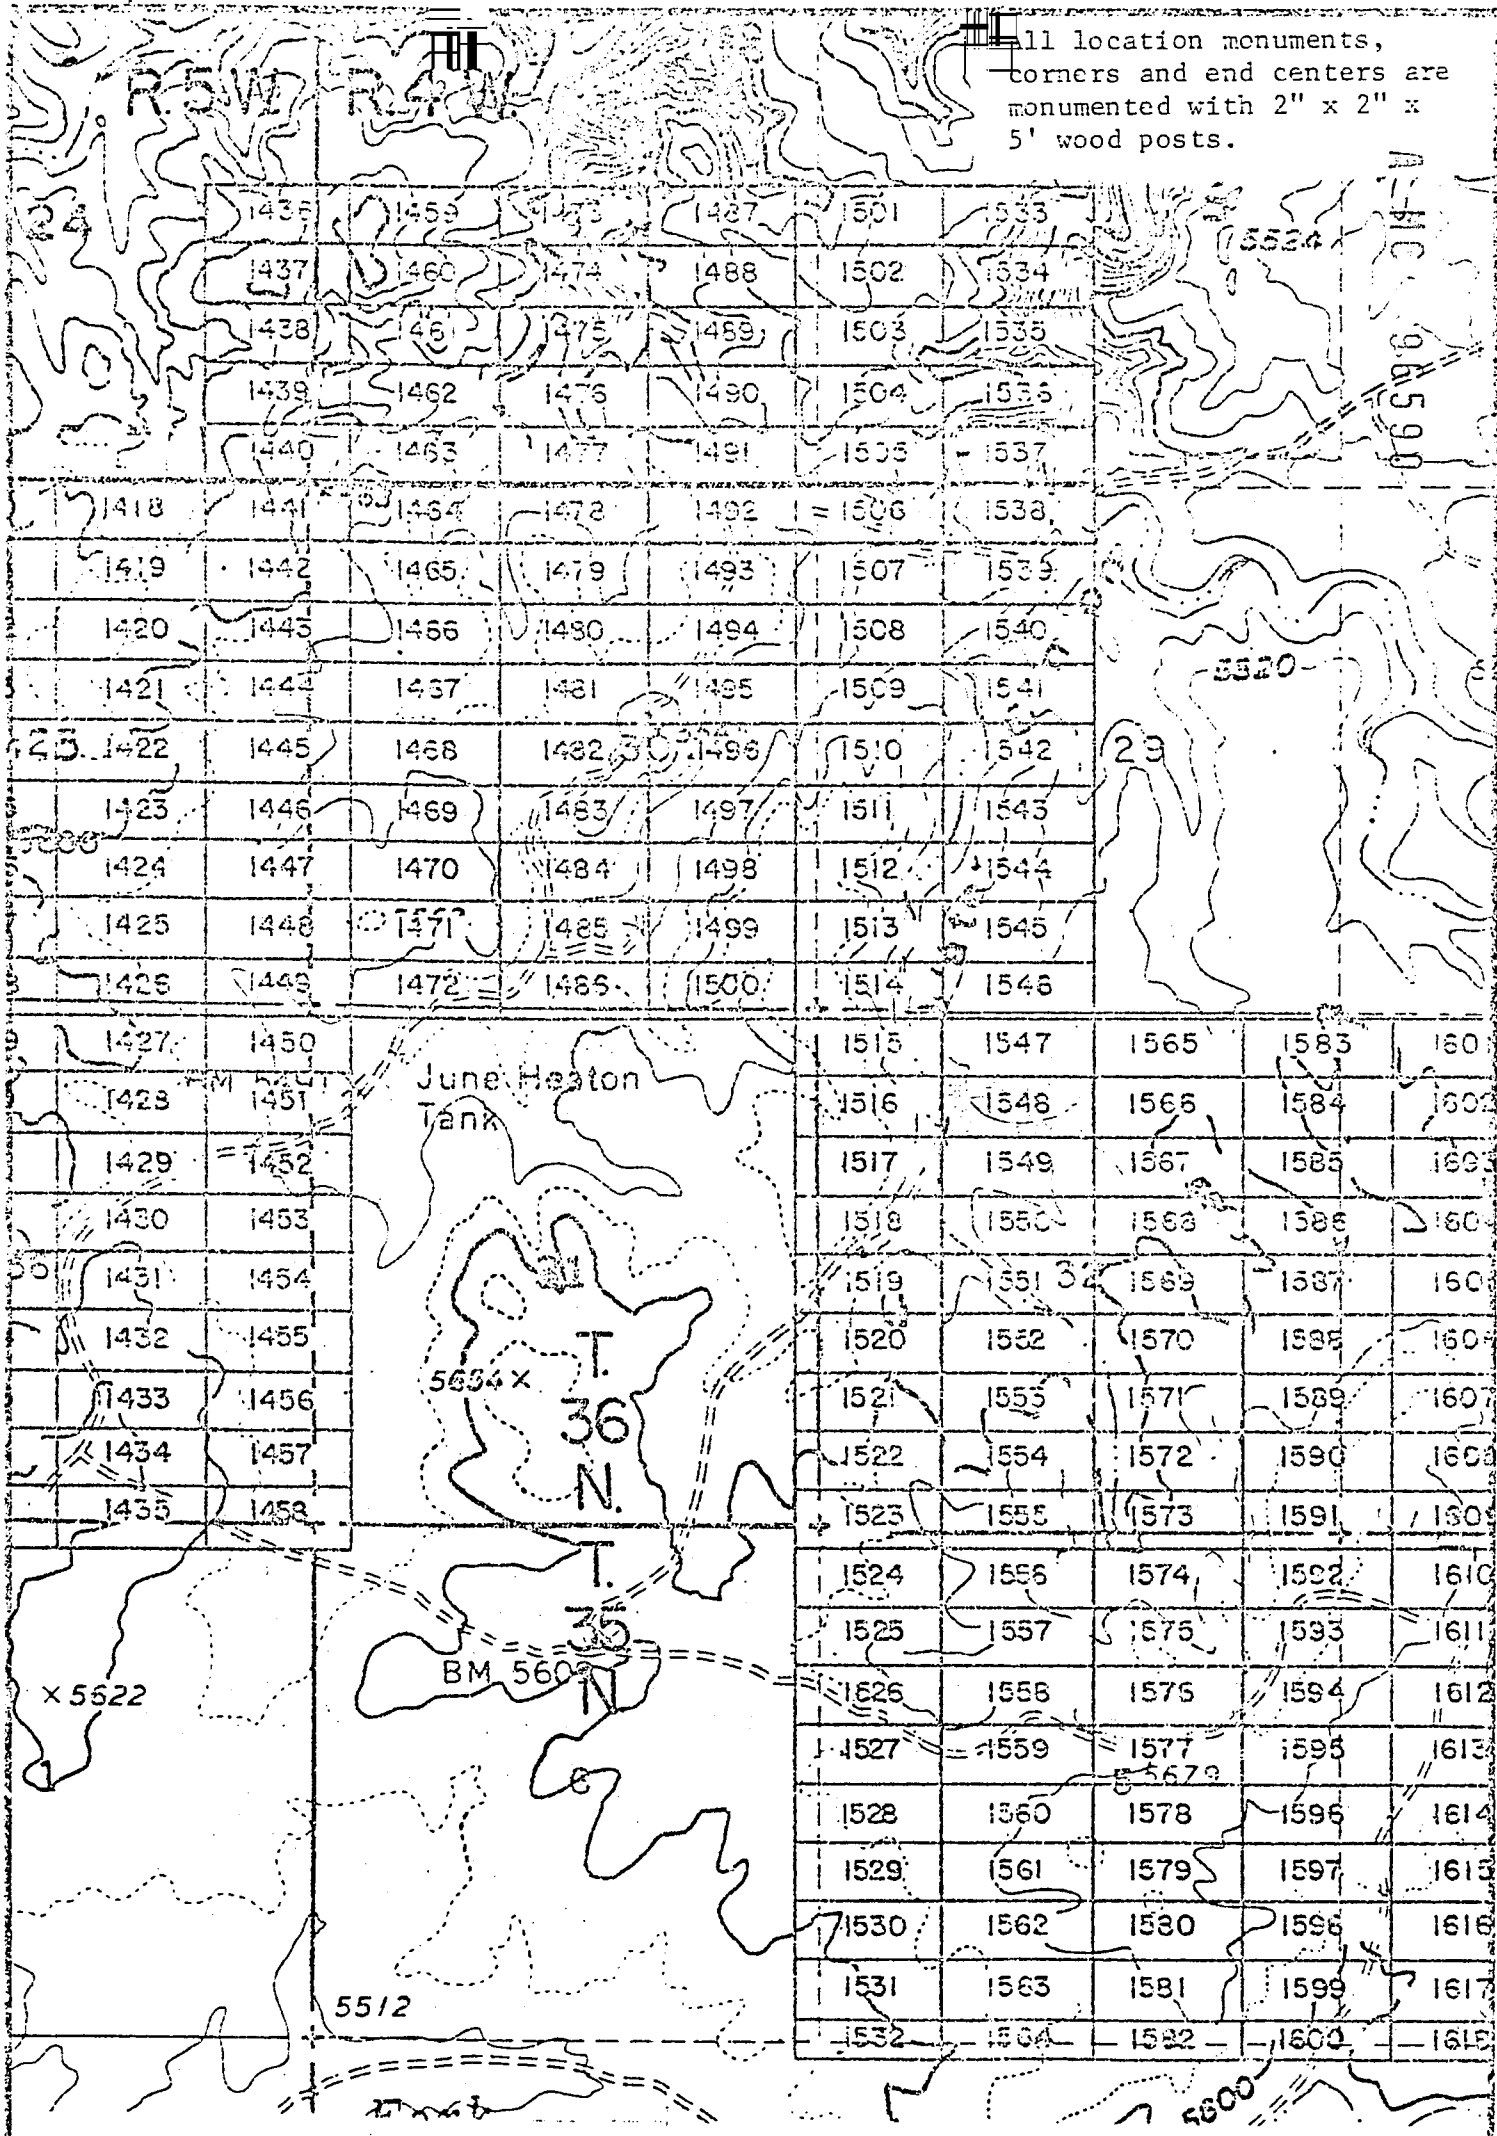 All location monuments,
corners and end centers are
monumented with 2" x 2" x
5' wood posts.
R.5W. R.4W.
24
5524
1436 1459 1473 1487 1501 1533
1437 1460 1474 1488 1502 1534
1438 1461 1475 1489 1503 1535
1439 1462 1476 1490 1504 1536
1440 1463 1477 1491 1505 1537
1418 1441 1464 1478 1492 1506 1538
1419 1442 1465 1479 1493 1507 1539
1420 1443 1466 1480 1494 1508 1540
1421 1444 1467 1481 1495 1509 1541
5520
1422 1445 1468 1482 30 1496 1510 1542 29
1423 1446 1469 1483 1497 1511 1543
1424 1447 1470 1484 1498 1512 1544
1425 1448 1471 1485 1499 1513 1545
1426 1449 1472 1486 1500 1514 1546
1427 1450 1515 1547 1565 1583
June Heaton
Tank
1428 1451 1516 1548 1566 1584 1602
1429 1452 1517 1549 1567 1585 1603
1430 1453 1518 1550 1568 1586
1431 1454 31 1519 1551 32 1569 1587
1432 1455 1520 1552 1570 1588
T.
36
N.
5654 ×
1433 1456 1521 1553 1571 1589 1607
1434 1457 1522 1554 1572 1590 1608
1435 1458 1523 1555 1573 1591 1609
T.
35
N
1524 1556 1574 1592 1610
1525 1557 1575 1593 1611
× 5622
1526 1558 1576 1594 1612
1527 1559 1577 1595 1613
1
6
5 5679
1528 1560 1578 1596 1614
1529 1561 1579 1597 1615
1530 1562 1580 1598 1616
1531 1563 1581 1599 1617
5512
1532 1564 1582 1600 1618
5600